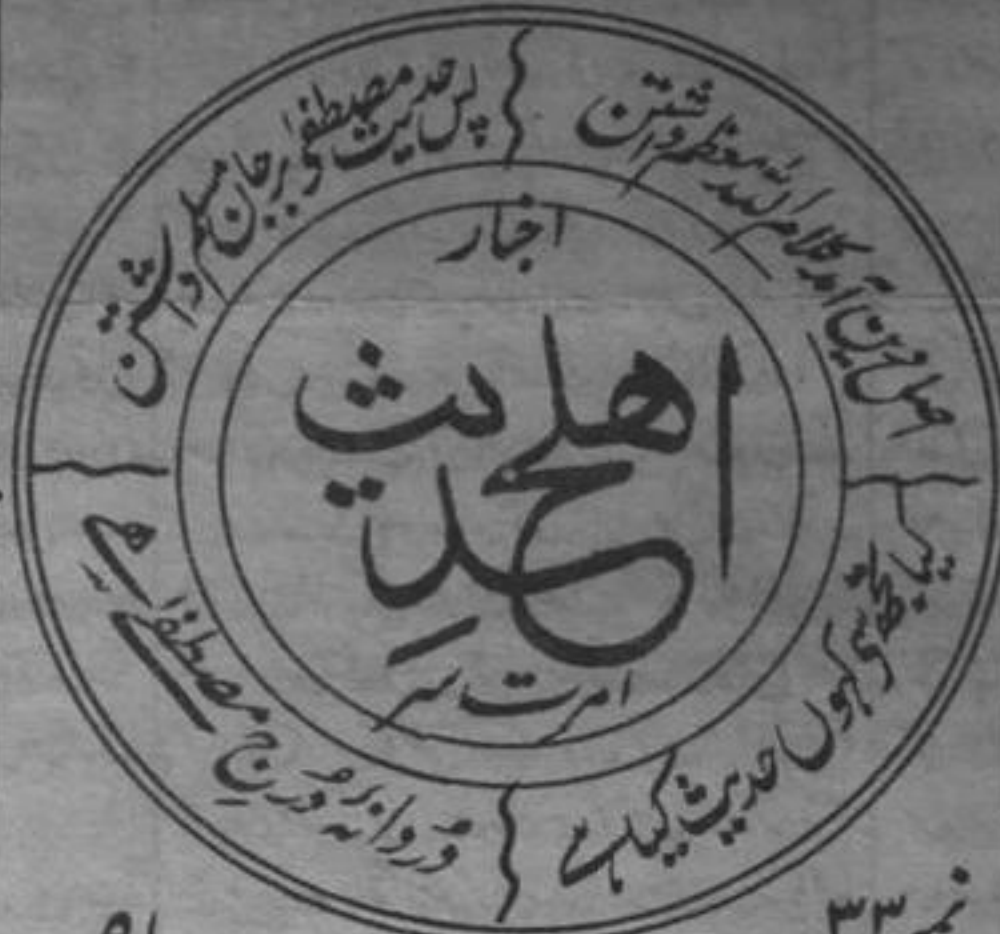 اصل دین آمد کلام اللہ معظم داشتن
پس حدیث مصطفیٰ بر جان مسلم داشتن
اخبار
اهلحدیث
امرت سر
کیا تجھ سے کہوں حدیث کیا ہے
دُردانہ دُرجِ مصطفےٰ ہے
نمبر ۳۳